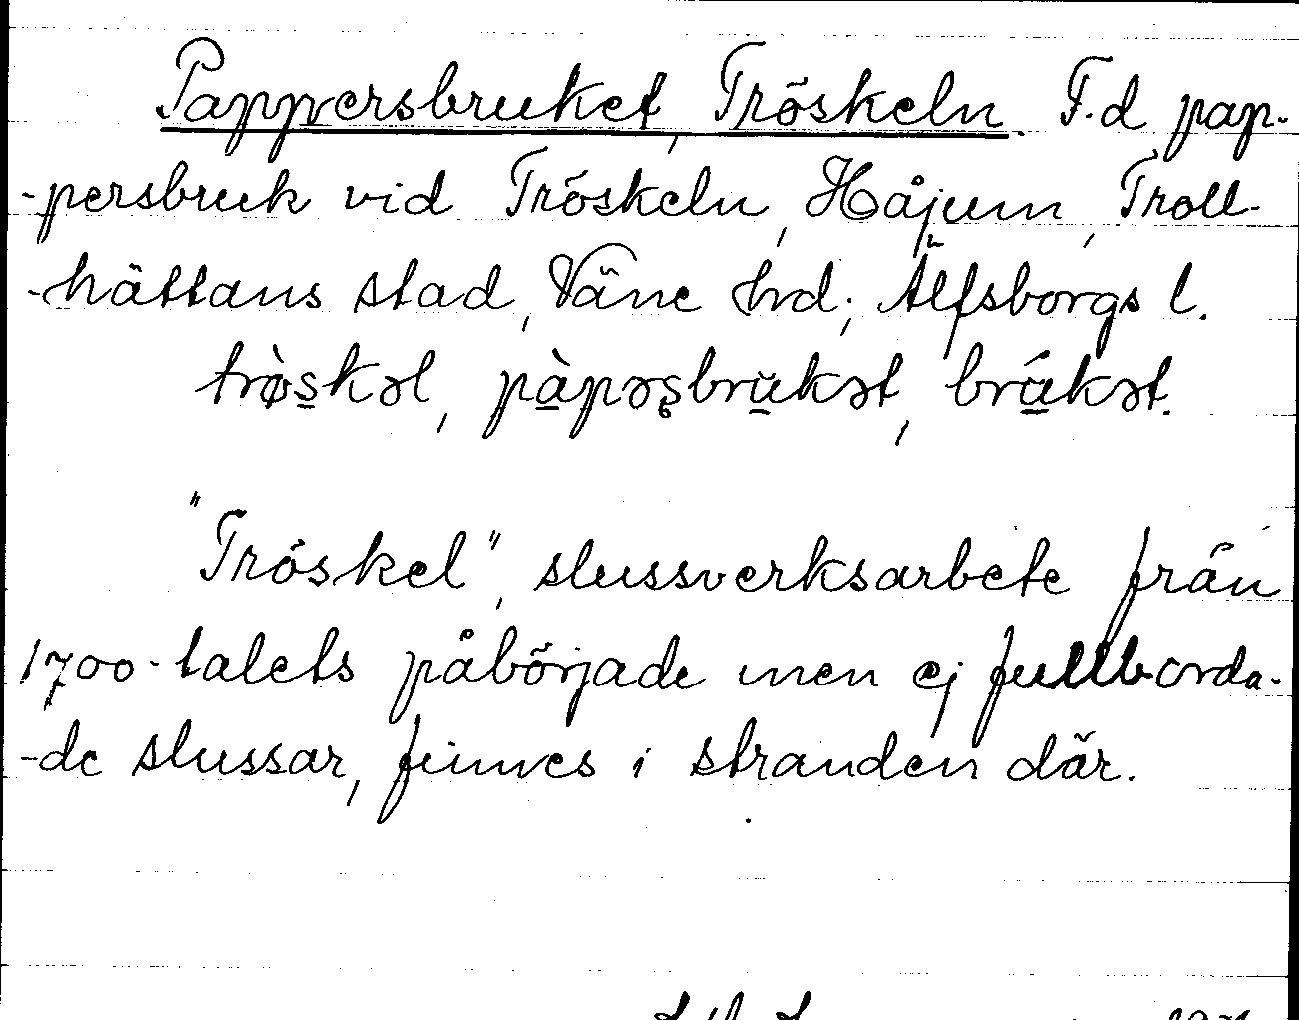 Pappersbruket, Tröskeln. F.d pap-
-persbruk vid Tröskeln, Håjum, Troll-
-hättans stad, Väne hrd; Älfsborgs l.
trø̀s̠kəl, pà̠pəʂbru̠kət, brú̠kət.
"Tröskel", slussverksarbete från
1700-talets påbörjade men ej fullborda-
-de slussar, finnes i stranden där.